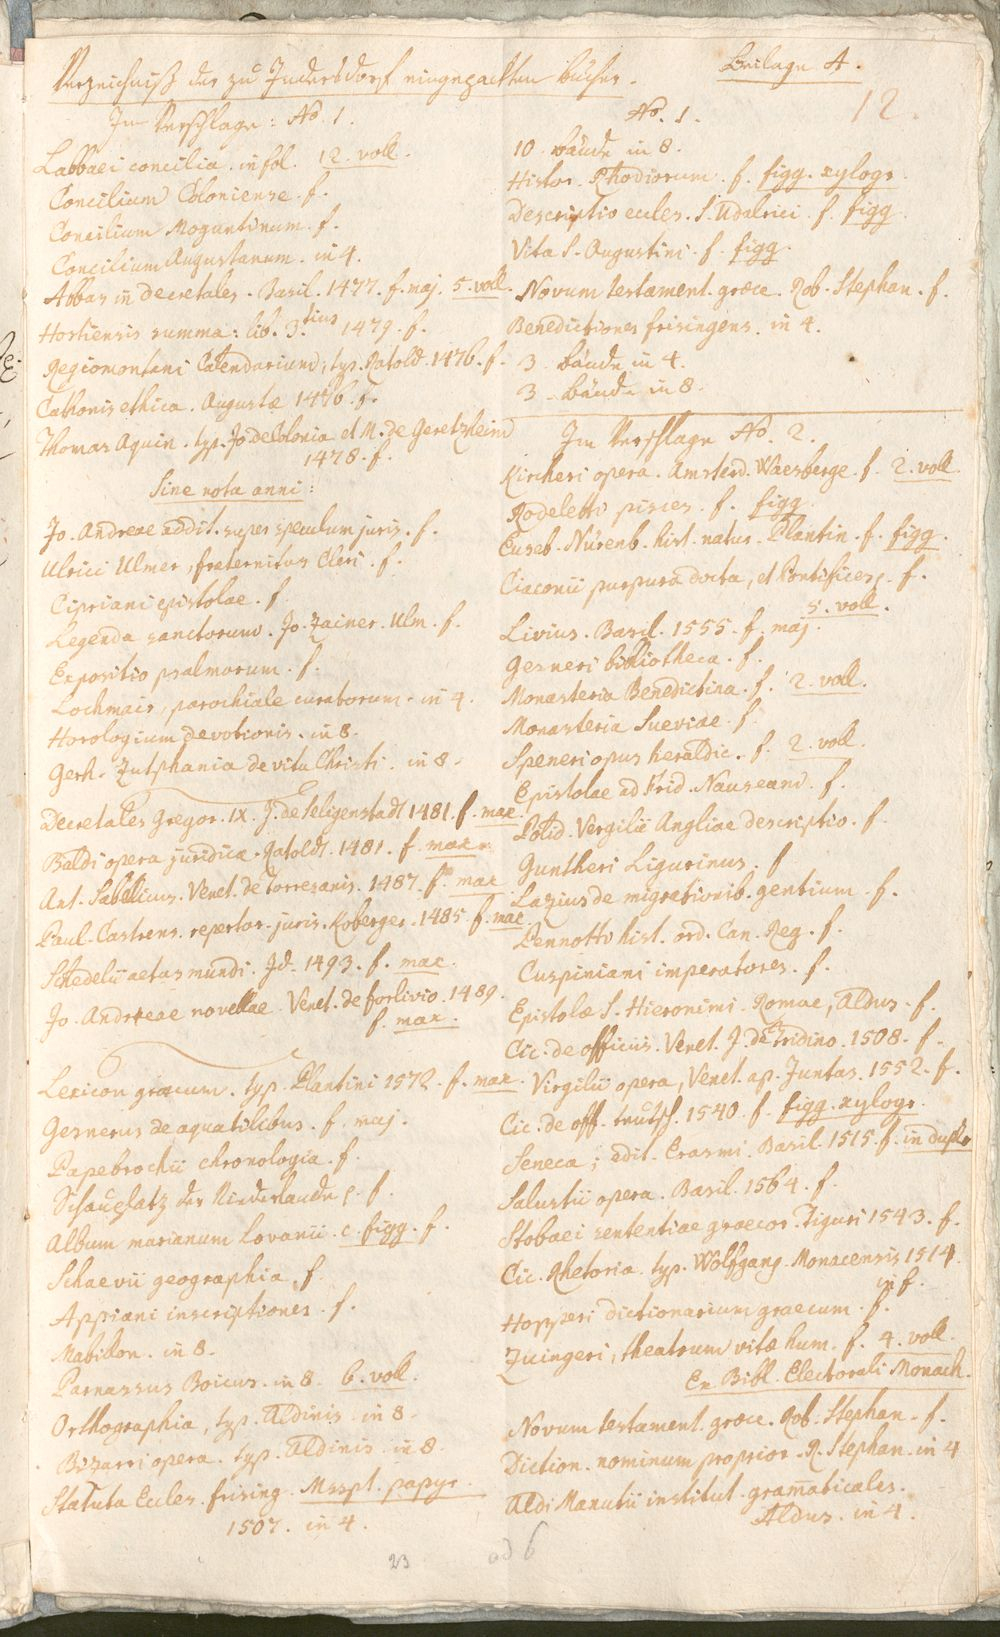 Verzeichniß der zu Indersdorf eingepackten Bücher.
Beilage A.
12.
Im Verschlage: No. 1.
Labbaei concilia. in fol. 12. voll.
Concilium Coloniense. f.
Concilium Moguntinum. f.
Concilium Augustanum. in 4.
Abbas in decretales. Basil. 1477. f. maj. 5. voll.
Hostiensis summa: lib. 3.tius 1479. f.
Regiomontani Calendarium, typ. Ratold. 1476. f.
Cathonis ethica. Augustae 1476. f.
Thomas Aquin. typ. Jo de Colonia et M. de Geretzheim
1478. f.
Sine nota anni:
Jo. Andreae addit. super speculum juris. f.
Ulrici Ulmer, fraternitus Cleri. f.
Cipriani epistolae. f.
Legenda sanctorum. Jo. Zainer. Ulm. f.
Expositio psalmorum. f.
Lochmair, parochiale curatorum. in 4.
Horologium devotionis. in 8.
Gerh. Zutphania de vita Christi. in 8.
Decretales Gregor. IX. J. de Seligenstadt 1481. f. max.
Baldi opera juridica. Ratoldt. 1481. f. max.
Ant. Sabellicus. Venet. de Torresanis. 1487. f. max
Paul. Castrens. repertor. juris. Koberger. 1485. f. max.
Schedelii aetas mundi. Id. 1493. f. max.
Jo. Andreae novellae. Venet. de forlivio. 1489.
f. max.
Lexicon graecum. typ. Plantini 1572. f. max.
Gesnerus de aquatilibus. f. maj.
Papebrochii chronologia. f.
Schauplatz der Niederlande p. f.
Album marianum Lovanii. c. figg. f.
Schaevii geographia. f.
Appiani inscriptiones. f.
Mabillon. in 8.
Parnassus Boicus. in 8. 6. voll.
Orthographia, typ. Aldinis. in 8.
Bizarri opera. typ. Aldinis. in 8.
Statuta Eccles. frising. Msspt. papyr.
1507. in 4.
No. 1.
10. bände in 8.
Histor. Rhodiorum. f. figg. xylogr.
Descriptio eccles. S. Udalrici. f. figg.
Vita S. Augustini. f. figg.
Novum testament. graece. Rob. Stephan. f.
Benedictiones frisingens. in 4.
3. bände in 4.
3. bände in 8.
Im Verschlage No. 2.
Kircheri opera. Amsterd. Waesberge. f. 2. voll.
Rodeletti pisces. f. figg.
Euseb. Nürenb. hist. natur. Plantin. f. figg.
Ciaconii purpura docta, et Pontifices p. f.
5. voll.
Livius. Basil. 1555. f. maj.
Gesneri bibliotheca. f.
Monasteria Benedictina. f. 2. voll.
Monasteria Sueviae. f.
Speneri opus heraldic. f. 2. voll.
Epistolae ad Frid. Nauseam. f.
Polid. Vergilii Angliae descriptio. f.
Guntheri Ligurinus. f
Lazius de migrationib. gentium. f.
Pennotto hist. ord. Can. Reg. f.
Cuspiniani imperatores. f.
Epistolae S. Hieronimi. Romae, Aldus. f.
Cic. de officiis. Venet. J. de Tridino. 1508. f.
Virgilii opera, Venet. ap. Juntas. 1552. f.
Cic. de off. teutsch. 1540. f. figg. xylogr.
Seneca; edit. Erasmi. Basil. 1515. f. in duplo
Salustii opera. Basil. 1564. f.
Stobaei sententiae graecor. Tiguri 1543. f.
Cic. Rhetoria. typ. Wolfgang. Monacensis 1514
in f.
Hopperi dictionarium graecum. f.
Zuingeri, theatrum vitae hum. f. 4. voll.
Ex Bibl. Electorali Monach.
Novum testament. graece. Rob. Stephan. f.
Diction. nominum proprior. R. Stephan. in 4
Aldi Manutii institut. grammaticales.
Aldus. in 4.
23
ad 6